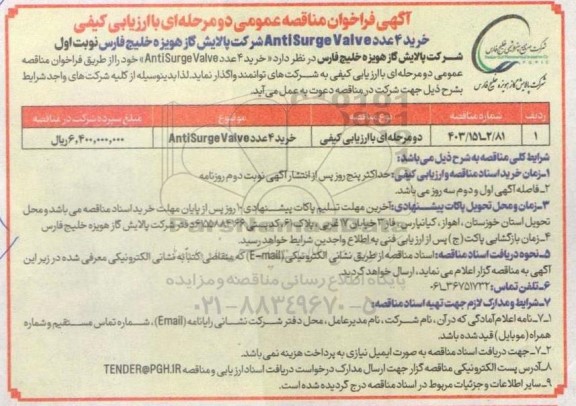 آگهی فراخوان مناقصه عمومی دو مرحله ای با ارزیابی کیفی
خرید ۴ عدد AntiSurge Valve شرکت پالایش گاز هویزه خلیج فارس نوبت اول
شرکت پالایش گاز هویزه خلیج فارس در نظر دارد « خرید ۴ عدد AntiSurge Valve» خود را از طریق فراخوان مناقصه
عمومی دو مرحله ای با ارزیابی کیفی به شرکت های توانمند واگذار نماید. لذا بدینوسیله از کلیه شرکت های واجد شرایط
بشرح ذیل جهت شرکت در مناقصه دعوت به عمل می آید.
شرکت پالایش گاز هویزه خلیج فارس
ردیف شماره مناقصه نوع مناقصه موضوع مبلغ سپرده شرکت در مناقصه
۱ ۴۰۳/۱۵۱_۲/۸۱ دو مرحله ای با ارزیابی کیفی خرید ۴ عدد AntiSurge Valve ۶,۴۰۰,۰۰۰,۰۰۰ ریال
شرایط کلی مناقصه به شرح ذیل می باشد:
۱_زمان خرید اسناد مناقصه و ارزیابی کیفی: حداکثر پنج روز پس از انتشار آگهی نوبت دوم روزنامه
۲_فاصله آگهی اول و دوم سه روز می باشد.
۳_زمان و محل تحویل پاکات پیشنهادی: آخرین مهلت تسلیم پاکات پیشنهادی ۱۰ روز پس از پایان مهلت خرید اسناد مناقصه می باشد و محل
تحویل استان خوزستان ، اهواز، کیانپارس، فاز ۳ خیابان ۱۷ غربی، پلاک ۶۱ دفتر شرکت پالایش گاز هویزه خلیج فارس
۴_زمان بازگشایی پاکت (ج) پس از ارزیابی فنی به اطلاع واجدین شرایط خواهد رسید.
۵_نحوه دریافت اسناد مناقصه: اسناد مناقصه از طریق نشانی الکترونیکی (E-mail) که متقاضی کتباً به نشانی الکترونیکی معرفی شده در زیر این
آگهی به مناقصه گزار اعلام می نماید، ارسال خواهد گردید.
۶_تلفن تماس: ۳۶۷۵۱۷۳۲_۰۶۱
۷_شرایط و مدارک لازم جهت تهیه اسناد مناقصه:
۱_۷_نامه اعلام آمادگی که در آن ، نام شرکت ، نام مدیرعامل ، محل دفتر شرکت نشانی رایانامه (Email) ، شماره تماس مستقیم و شماره
همراه (موبایل) قید شده باشد.
۲_۷_ جهت دریافت اسناد مناقصه به صورت ایمیل نیازی به پرداخت هزینه نمی باشد.
۸_آدرس پست الکترونیکی مناقصه گزار جهت ارسال مدارک درخواست دریافت اسناد ارزیابی و مناقصه TENDER@PGH.IR
۹_سایر اطلاعات و جزئیات مربوط در اسناد مناقصه درج گردیده شده است.
پایگاه اطلاع رسانی مناقصه و مزایده
۰۲۱-۸۸۳۴۹۶۷۰-۵